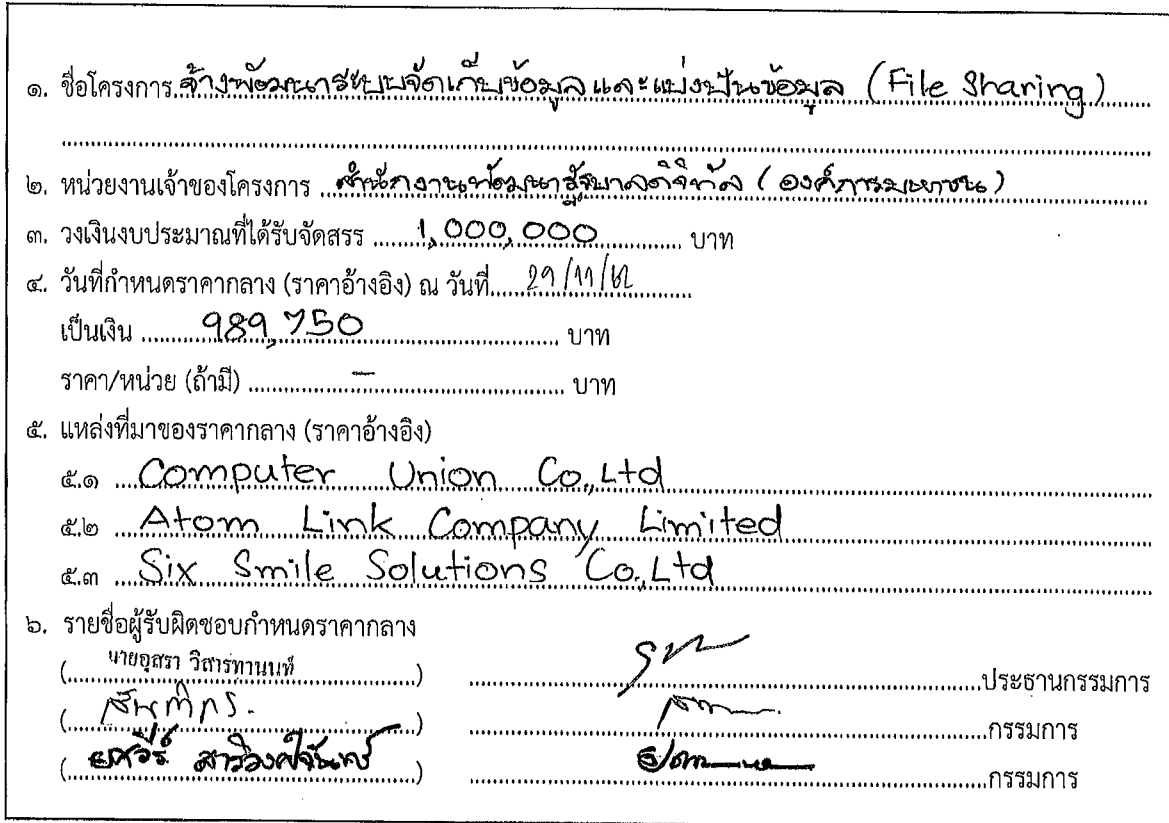 ๑. ชื่อโครงการ จ้างพัฒนาระบบจัดเก็บข้อมูลและแบ่งปันข้อมูล (File Sharing)
๒. หน่วยงานเจ้าของโครงการ สำนักงานพัฒนารัฐบาลดิจิทัล (องค์การมหาชน)
๓. วงเงินงบประมาณที่ได้รับจัดสรร 1,000,000 บาท
๔. วันที่กำหนดราคากลาง (ราคาอ้างอิง) ณ วันที่ 29/11/62
เป็นเงิน 989,750 บาท
ราคา/หน่วย (ถ้ามี) - บาท
๕. แหล่งที่มาของราคากลาง (ราคาอ้างอิง)
๕.๑ Computer Union Co.,Ltd
๕.๒ Atom Link Company Limited
๕.๓ Six Smile Solutions Co.,Ltd
๖. รายชื่อผู้รับผิดชอบกำหนดราคากลาง
(นายอุสรา วิสารทานนท์) ประธานกรรมการ
( ) กรรมการ
( ) กรรมการ